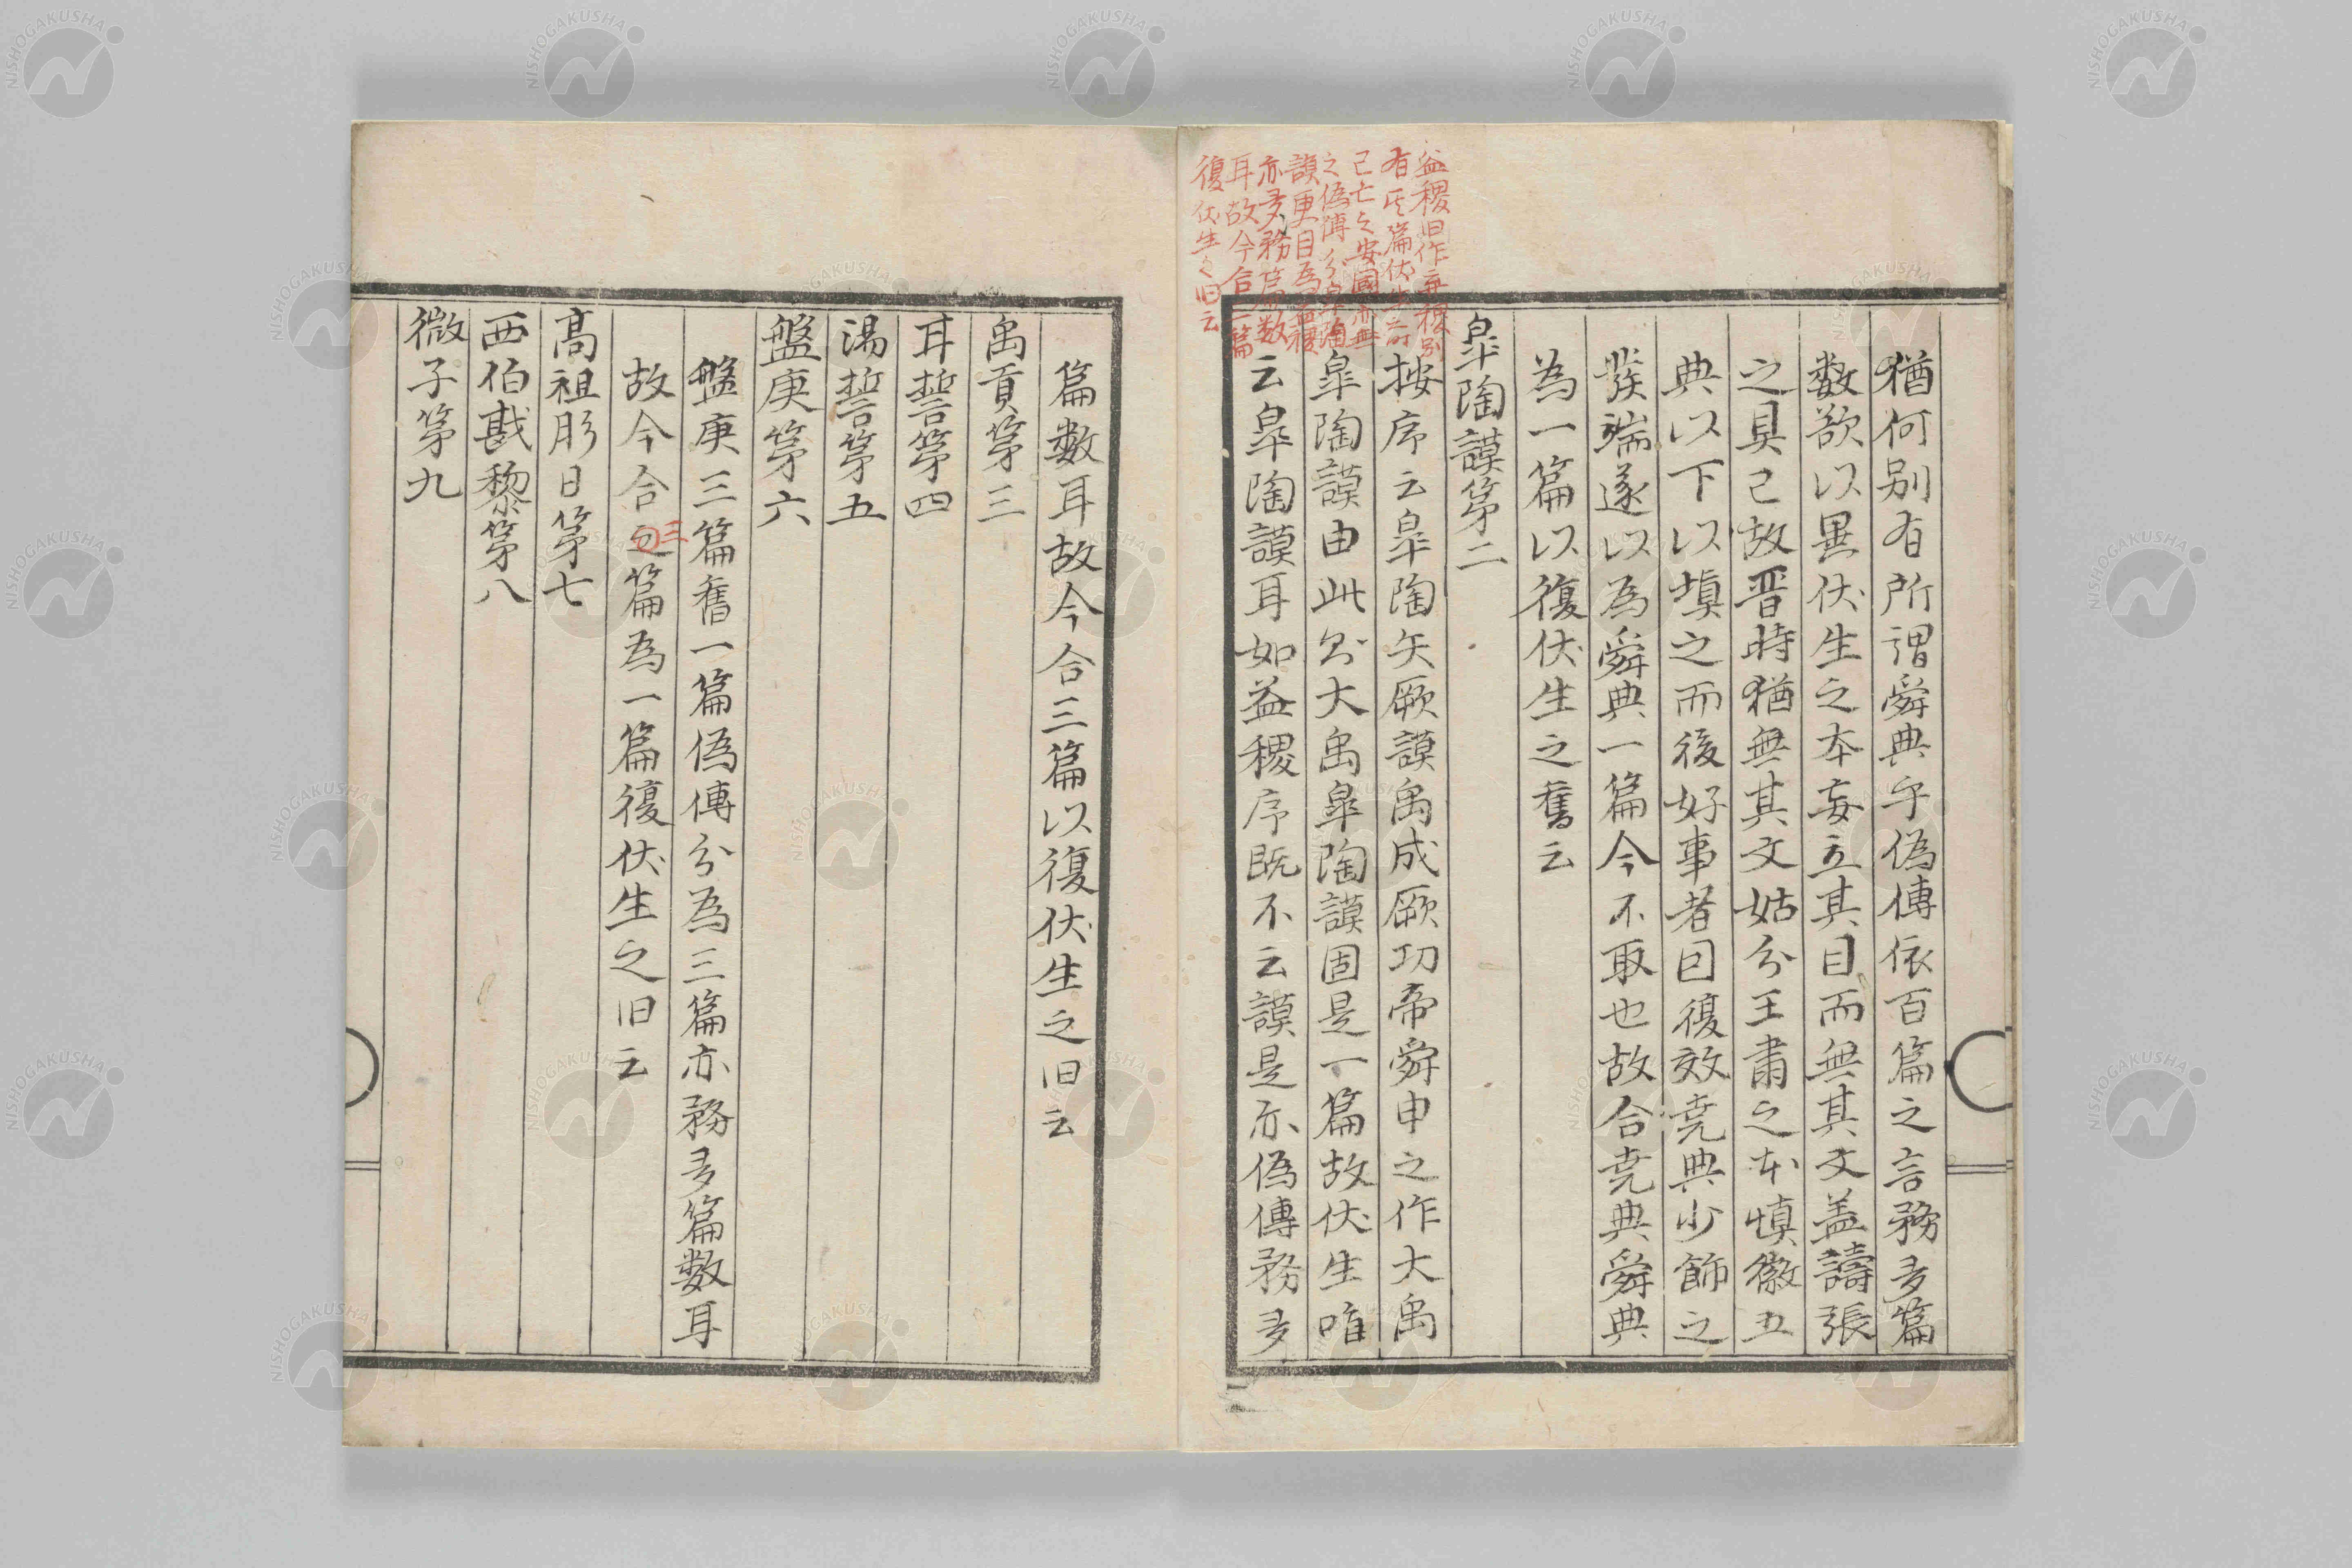 猶何別有所謂舜典乎偽傳依百篇之言務多篇
数欲以異伏生之本妄立其目而無其文盖譸張
之具已故晋時猶無其文姑分王肅之本慎徽五
典以下以塡之而後好事者囙復效尭典少飾之
發端遂以為舜典一篇今不取也故合尭典舜典
為一篇以復伏生之舊云
皐陶謨第二
按序云皐陶矢厥謨禹成厥功帝舜申之作大禹
皐陶謨由此觀大禹皐陶謨固是一篇故伏生唯
云皐陶謨耳如益稷序既不云謨是亦偽傳務多
益稷旧作棄稷別
有其篇伏生之所
已亡之安國亦無
之偽傳分皐陶
謨更目為益稷
亦多務篇数
耳故今合二篇
復伏生之旧云
篇數耳故今合三篇以復伏生之旧云
禹貢第三
甘誓第四
湯誓第五
盤庚第六
盤庚三篇舊一篇偽傳分為三篇亦務多篇数耳
故今合三篇為一篇復伏生之旧云
高祖肜日第七
西伯戡黎第八
微子第九
NISHOGAKUSHA